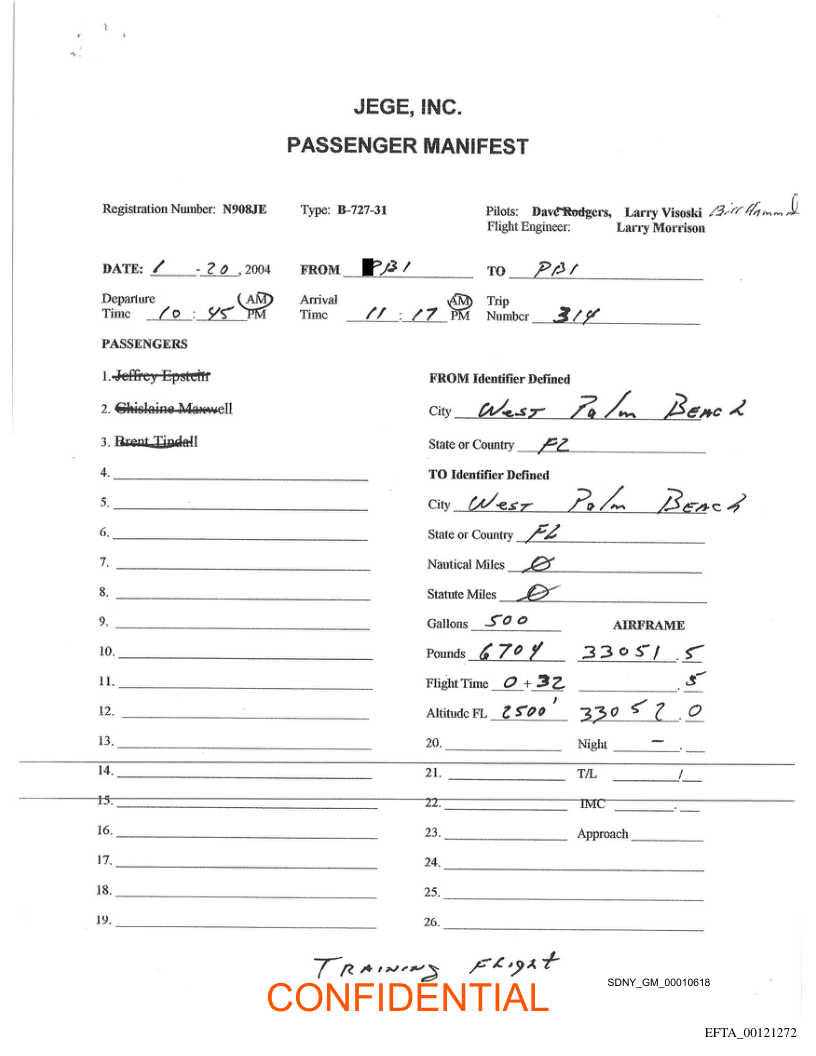 JEGE, INC.
PASSENGER MANIFEST
Registration Number: N908JE Type: B-727-31 Pilots: Dave Rodgers, Larry Visoski Bill Hammond
Flight Engineer: Larry Morrison
DATE: 1 - 20, 2004 FROM PBI TO PBI
Departure Time 10 : 45 AM PM Arrival Time 11 : 17 AM PM Trip Number 314
PASSENGERS
1. Jeffrey Epstein FROM Identifier Defined
2. Ghislaine Maxwell City West Palm Beach
3. Brent Tindall State or Country FL
4. TO Identifier Defined
5. City West Palm Beach
6. State or Country FL
7. Nautical Miles Ø
8. Statute Miles Ø
9. Gallons 500 AIRFRAME
10. Pounds 6704 33051.5
11. Flight Time 0 + 32 .5
12. Altitude FL 2500' 33052.0
13. 20. Night - .
14. 21. T/L /
15. 22. IMC .
16. 23. Approach
17. 24.
18. 25.
19. 26.
Training Flight
CONFIDENTIAL
SDNY_GM_00010618
EFTA_00121272